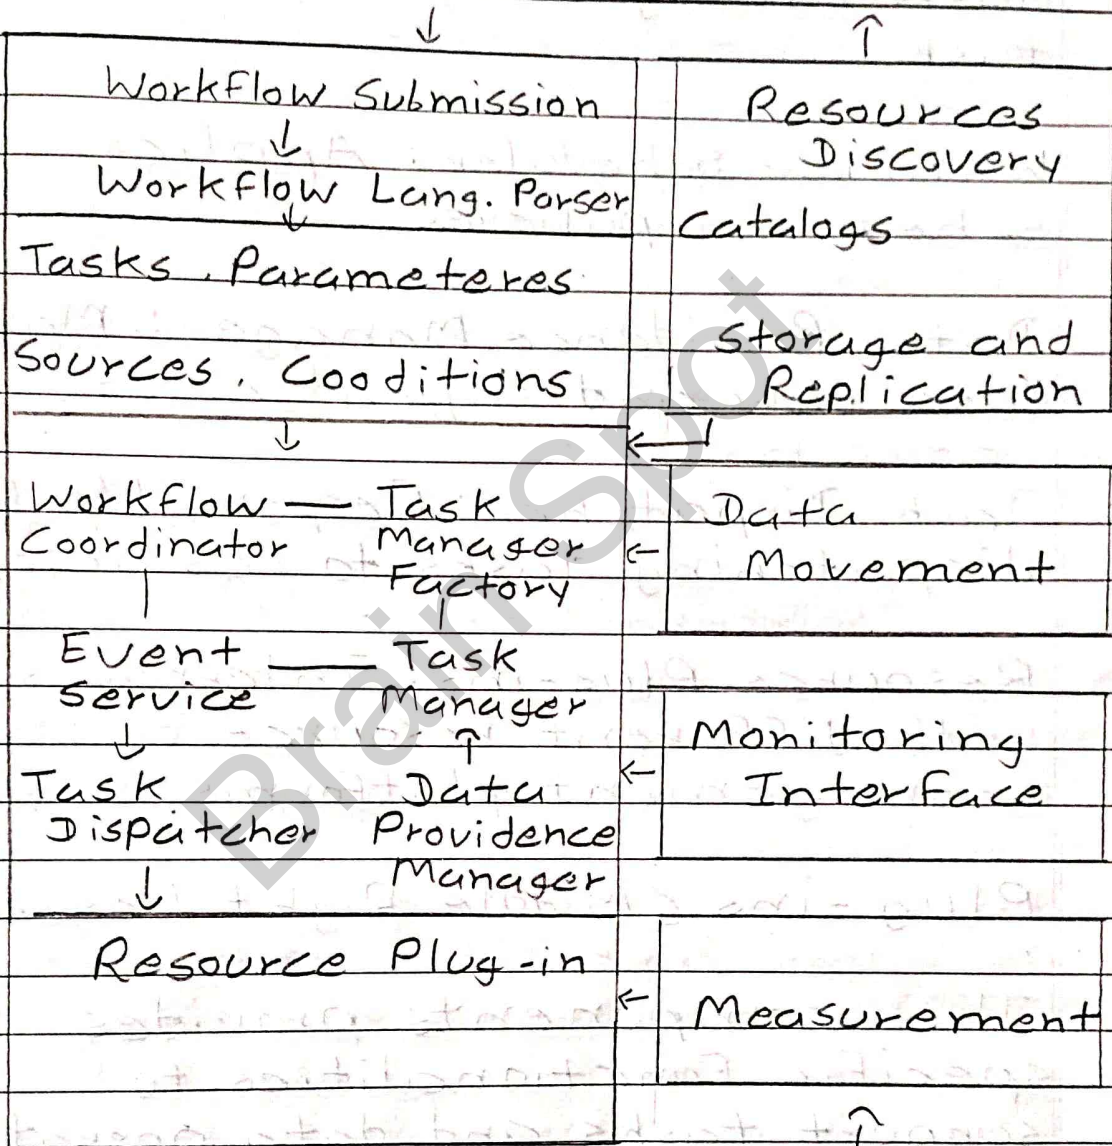 Workflow Submission
Workflow Lang. Parser
Tasks, Parameteres
Sources, Cooditions
Workflow — Task
Coordinator Manager
Factory
Event — Task
Service Manager
Task Data
Dispatcher Providence
Manager
Resource Plug-in
Resources
Discovery
Catalogs
Storage and
Replication
Data
Movement
Monitoring
Interface
Measurement
Brain Spot